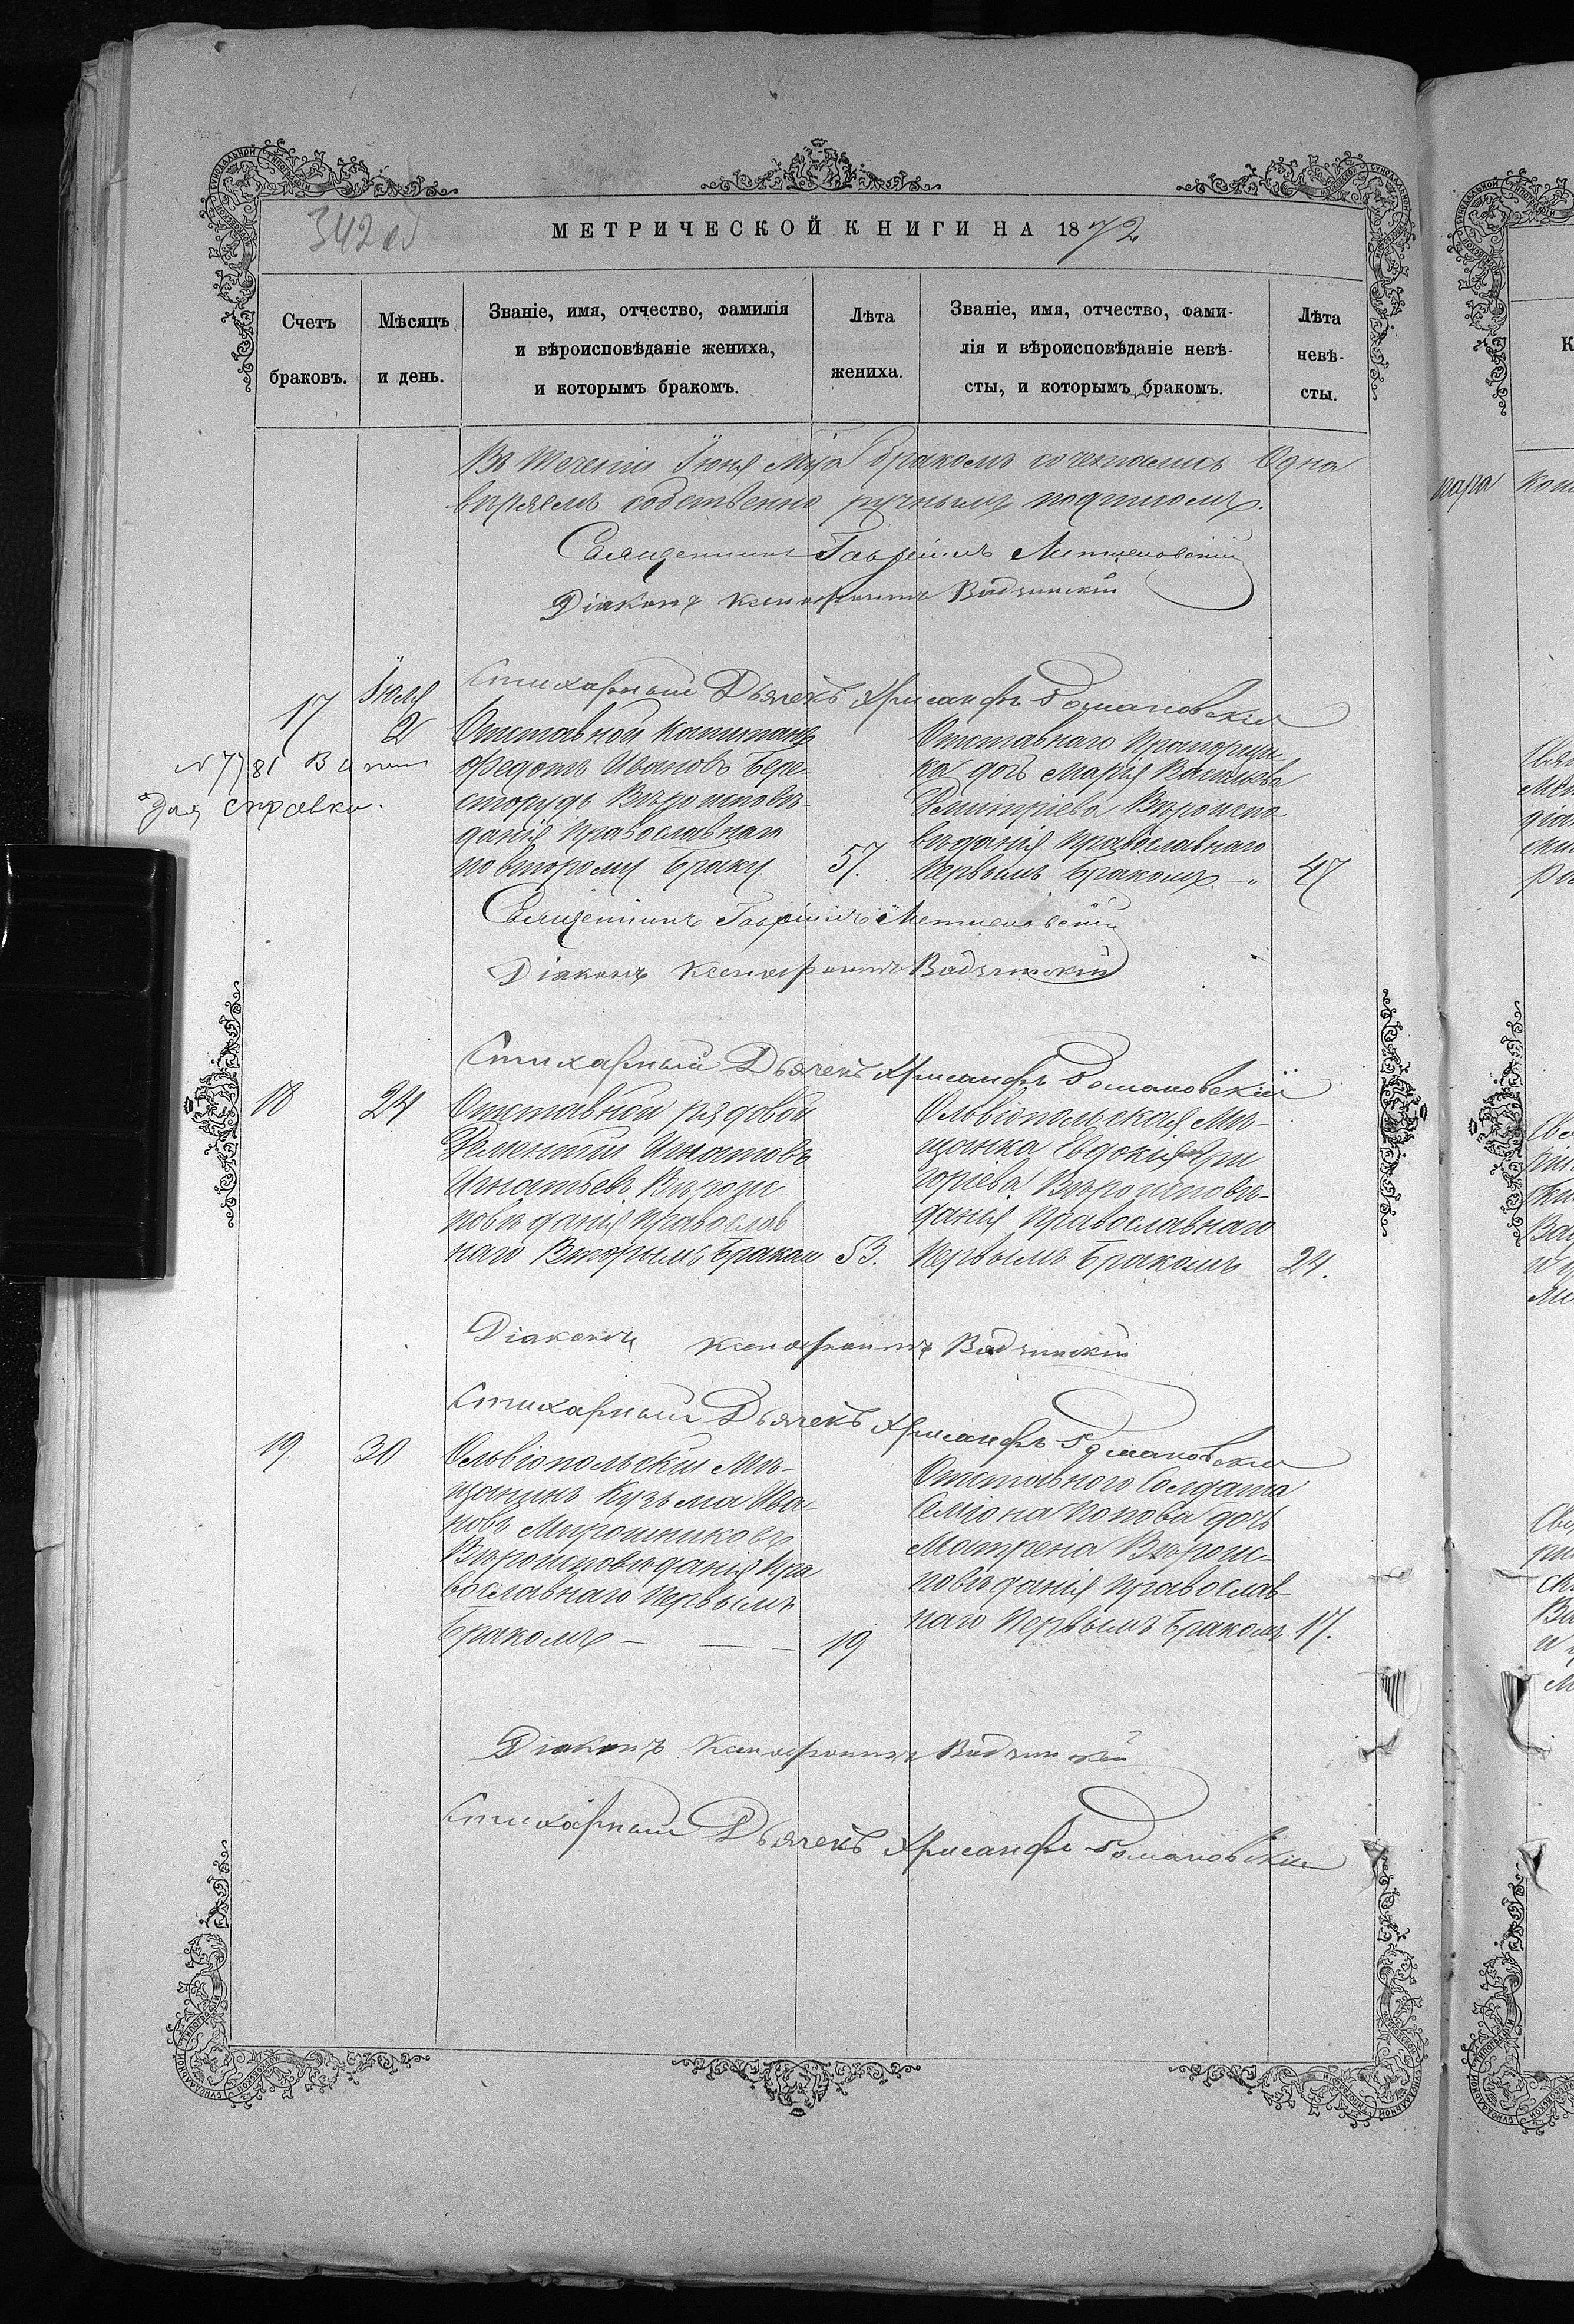 342 об
МЕТРИЧЕСКОЙ КНИГИ НА 1872
Счетъ браковъ.
Мѣсяцъ и день.
Званіе, имя, отчество, фамилія
и вѣроисповѣданіе жениха,
и которымъ бракомъ.
Лѣта жениха.
Званіе, имя, отчество, фами-
лія и вѣроисповѣданіе невѣ-
сты, и которымъ бракомъ.
Лѣта невѣ-
сты.
Въ теченіи Іюня Мца бракомъ сочетались Одна пара
вѣряемъ собственно ручнымъ подписомъ.
Священникъ Гавріилъ
Діаконъ Ксенофонтъ
Стихарный Дьячекъ Хрисанфъ Романовскій
17
Іюля
2
№ 7781
для справки.
Отставной Капитанъ
Федотъ Ивановъ Бере-
сторудъ Вѣроисповѣ-
данія Православнаго
по второму браку
57.
Отставнаго Прапорщи-
ка дочь Марія Васильева
Димитріева Вѣроиспо-
вѣданія Православнаго
Первымъ бракомъ. — „
47
Священникъ Гавріилъ
Діаконъ Ксенофонтъ
Стихарный Дьячекъ Хрисанфъ Романовскій
18
24
Отставной рядовой
Игнатовъ
Игнатьевъ Вѣроис-
повѣданія Православ
наго Вторымъ бракомъ
53.
Ольвіопольская Мѣ-
щанка Евдокія Гри
горіева Вѣроисповѣ-
данія Православнаго
Первымъ бракомъ
24.
Діаконъ Ксенофонтъ
Стихарный Дьячекъ Хрисанфъ Романовскій
19
30
Ольвіопольскій Мѣ-
щанинъ Кузьма Ива-
новъ Мирошниковъ
Вѣроисповѣданія Пра
вославнаго Первымъ
бракомъ — — —
19
Отставного Солдата
Семіона Попова дочь
Матрена Вѣроис-
повѣданія Православ-
наго Первымъ бракомъ
17.
Діаконъ Ксенофонтъ
Стихарный Дьячекъ Хрисанфъ Романовскій